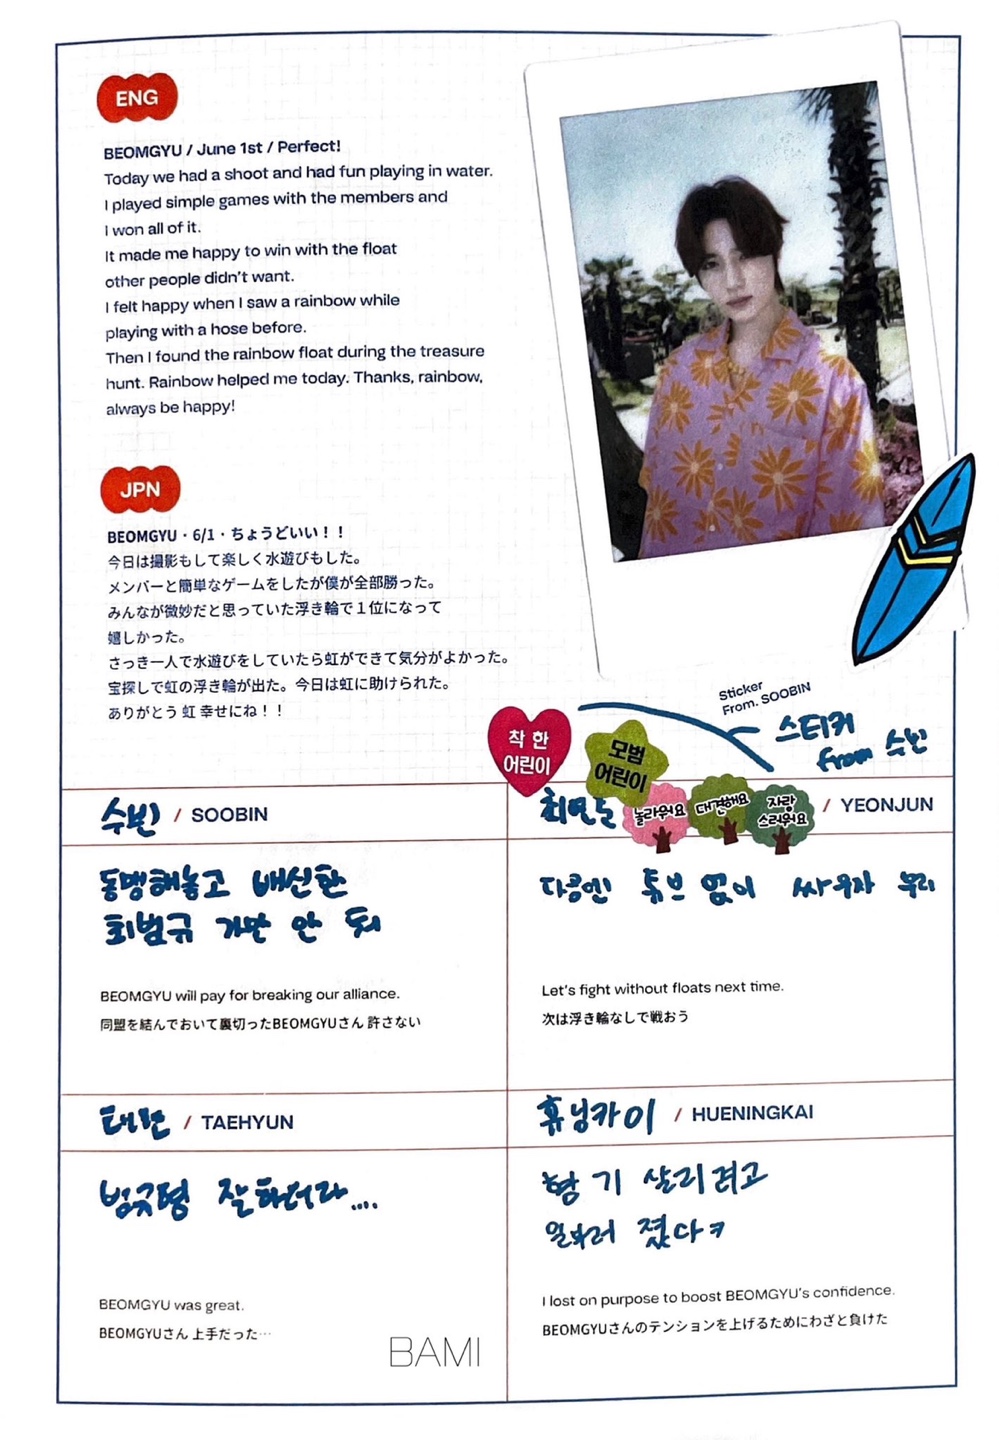 ENG
BEOMGYU / June 1st / Perfect!
Today we had a shoot and had fun playing in water.
I played simple games with the members and
I won all of it.
It made me happy to win with the float
other people didn't want.
I felt happy when I saw a rainbow while
playing with a hose before.
Then I found the rainbow float during the treasure
hunt. Rainbow helped me today. Thanks, rainbow,
always be happy!
JPN
BEOMGYU・6/1・ちょうどいい！！
今日は撮影もして楽しく水遊びもした。
メンバーと簡単なゲームをしたが僕が全部勝った。
みんなが微妙だと思っていた浮き輪で１位になって
嬉しかった。
さっき一人で水遊びをしていたら虹ができて気分がよかった。
宝探しで虹の浮き輪が出た。今日は虹に助けられた。
ありがとう 虹 幸せにね！！
Sticker
From. SOOBIN
스티커
from 수빈
착 한
어린이
모범
어린이
놀라워요
대견해요
자랑
스러워요
수빈 / SOOBIN
동맹해놓고 배신한
최범규 가만 안 둬
BEOMGYU will pay for breaking our alliance.
同盟を結んでおいて裏切ったBEOMGYUさん 許さない
최연준 / YEONJUN
다음엔 튜브 없이 싸우자 우리
Let's fight without floats next time.
次は浮き輪なしで戦おう
태현 / TAEHYUN
범규형 잘하더라....
BEOMGYU was great.
BEOMGYUさん 上手だった…
BAMI
휴닝카이 / HUENINGKAI
형 기 살리려고
일부러 졌다ㅋ
I lost on purpose to boost BEOMGYU's confidence.
BEOMGYUさんのテンションを上げるためにわざと負けた